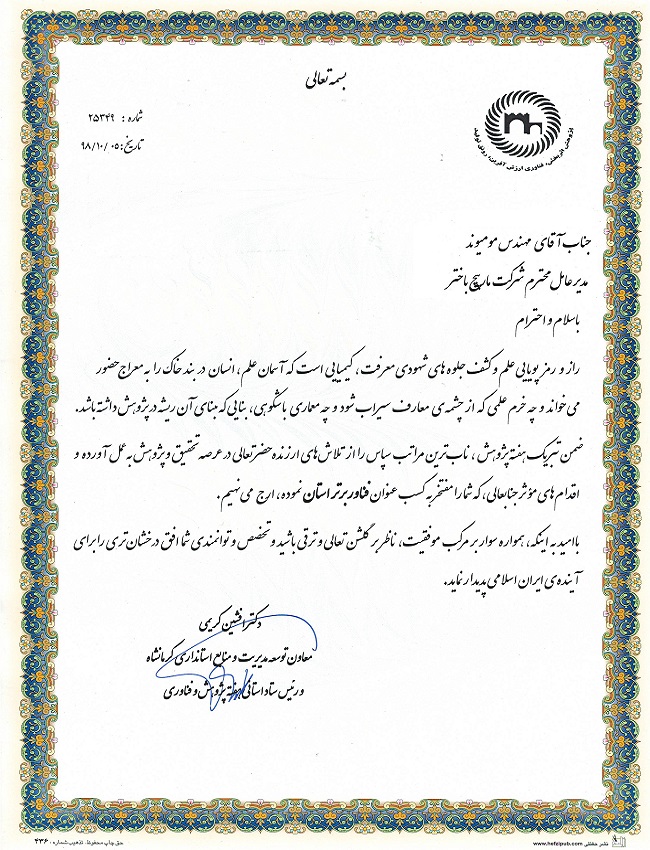 بسمه تعالی
شماره : ۲۵۳۴۹
تاریخ: ۹۸/۱۰/۰۵
پژوهش اثربخش، فناوری ارزش آفرین، رونق تولید
جناب آقای مهندس مومیوند
مدیر عامل محترم شرکت مارپیچ باختر
باسلام و احترام
راز و رمز پویایی علم و کشف جلوه های شهودی معرفت، کیمیایی است که آسمان علم، انسان در بند خاک را به معراج حضور
می خواند و چه خرم علمی که از چشمه ی معارف سیراب شود و چه معماری باشکوهی، بنایی که مبنای آن ریشه در پژوهش داشته باشد.
ضمن تبریک هفته پژوهش، ناب ترین مراتب سپاس را از تلاش های ارزنده حضرتعالی در عرصه تحقیق و پژوهش به عمل آورده و
اقدام های مؤثر جنابعالی، که شما را مفتخر به کسب عنوان فناور برتر استان نموده، ارج می نهیم.
باامید به اینکه، همواره سوار بر مرکب موفقیت، ناظر بر گلشن تعالی و ترقی باشید و تخصص و توانمندی شما افق درخشان تری را برای
آینده ی ایران اسلامی پدیدار نماید.
دکتر افشین کریمی
معاون توسعه مدیریت و منابع استانداری کرمانشاه
و رئیس ستاد استانی هفته پژوهش و فناوری
نشر حفظی www.hefzipub.com
حق چاپ محفوظ. تذهیب شماره : ۴۳۶